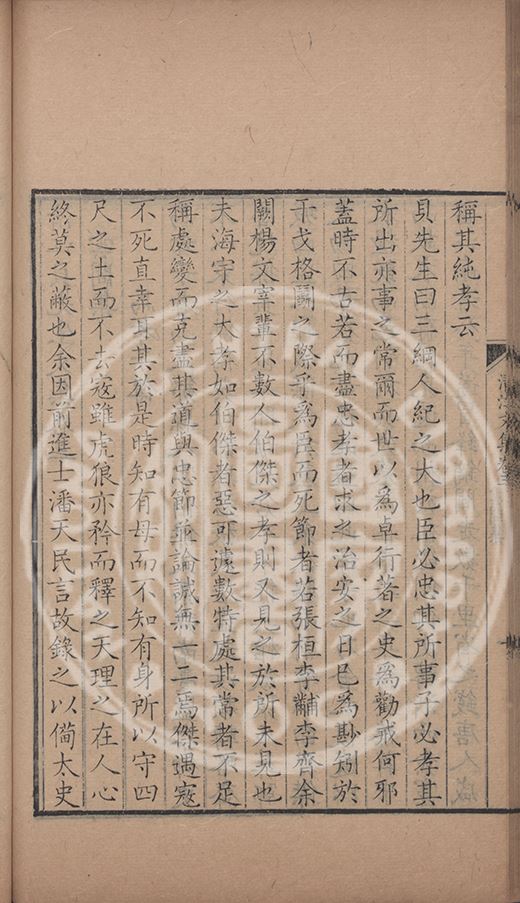 稱其純孝云
貝先生曰三綱人紀之大也臣必忠其所事子必孝其
所出亦事之常爾而世以爲卓行著之史爲勸戒何邪
蓋時不古若而盡忠孝者求之治安之日已爲尠矧於
干戈格鬭之際乎爲臣而死節者若張桓李黼李齊余
闕楊文宰輩不數人伯傑之孝則又見之於所未見也
夫海宇之大孝如伯傑者惡可遽數特處其常者不足
稱處變而克盡其道與忠節並論誠無一二焉傑遇寇
不死直幸耳其於是時知有母而不知有身所以守四
尺之土而不去寇雖虎狼亦矜而釋之天理之在人心
終莫之蔽也余因前進士潘天民言故錄之以備太史